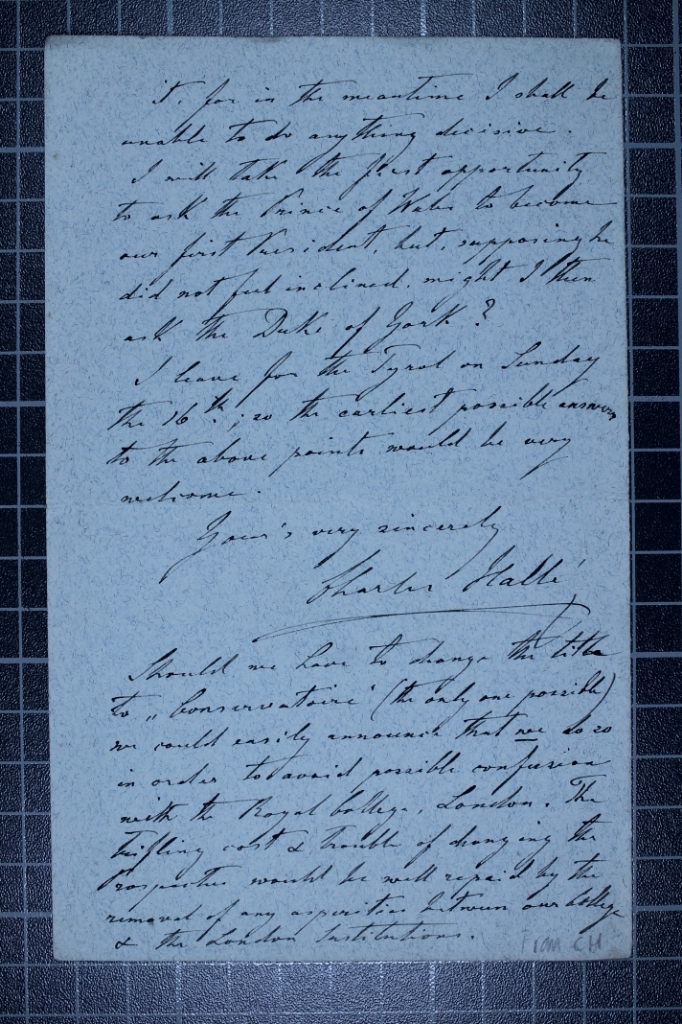 it, for in the meantime I shall be
unable to do anything decisive.
I will take the first opportunity
to ask the Prince of Wales to become
our first President, but, supposing he
did not feel inclined, might I then
ask the Duke of York?
I leave for the Tyrol on Sunday
the 16th; so the earliest possible answer
to the above points would be very
welcome.
Your's very sincerely
Charles Hallé
Should we have to change the title
to „Conservatoire" (the only one possible)
we could easily announce that we do so
in order to avoid possible confusion
with the Royal College, London. The
trifling cost & trouble of changing the
Prospectus would be well repaid by the
removal of any asperities between our College
& the London Institutions.
CH